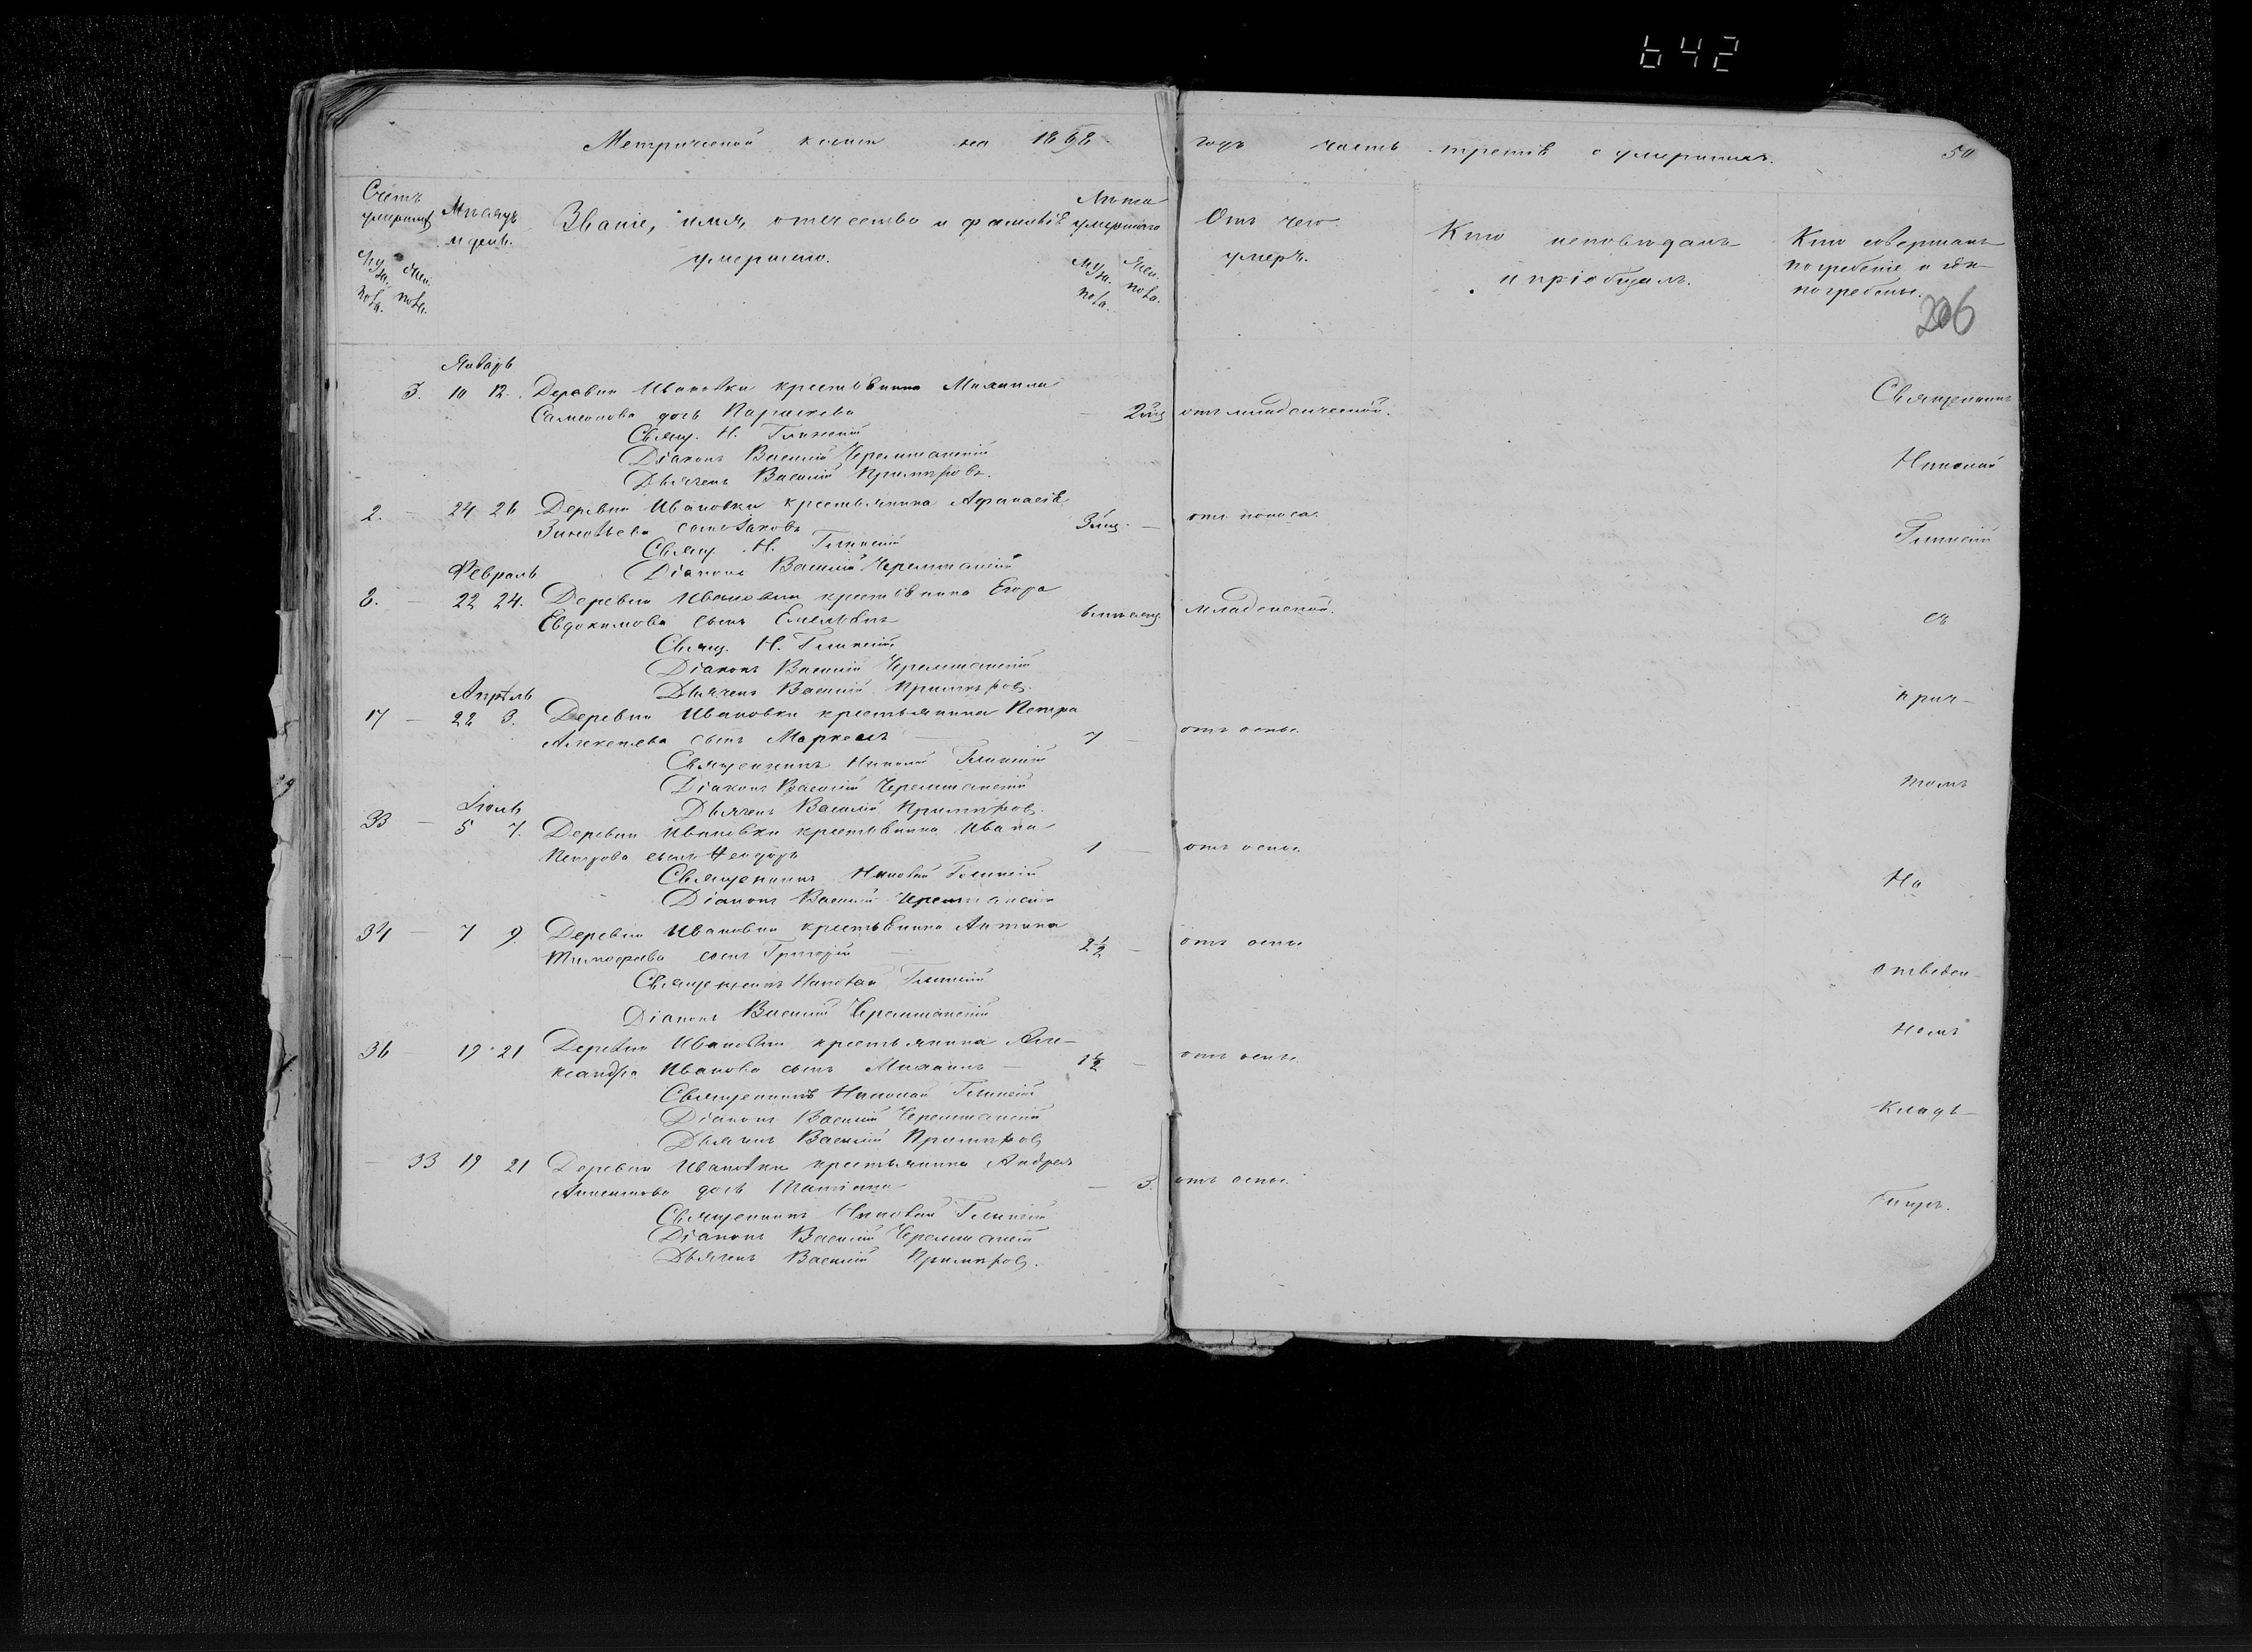 642
Метрической книги на 1868 годъ часть третія о умершихъ. 50
Счетъ умершихъ
Муж. пола. Жен. пола.
Мѣсяцъ и день.
Званіе, имя, отчество и фамилія умершаго.
Лѣта умершаго
Муж. пола. Жен. пола.
Отъ чего умеръ.
Кто исповѣдалъ и пріобщалъ.
Кто совершалъ погребеніе и гдѣ погребены.
206
Январь
3. 10 12. Деревни Ивановки крестьянина Михаила
Самсонова дочь Параскева — 2 мѣс. отъ младенческой.
Свящ. Н. Глинскій
Діаконъ Василій Черемшанскій
Дьячекъ Василій Примѣровъ.
2. — 24 26 Деревни Ивановки крестьянина Афанасія
Зиновьева сынъ Іаковъ 3 мѣс. — отъ поноса.
Свящ. Н. Глинскій
Діаконъ Василій Черемшанскій
Февраль
8. — 22 24. Деревни Ивановки крестьянина Егора
Евдокимова сынъ Емельянъ 6 мѣсяц. младенской.
Свящ. Н. Глинскій
Діаконъ Василій Черемшанскій
Дьячекъ Василій Примѣровъ.
Апрѣль
17 — 22 3. Деревни Ивановки крестьянина Петра
Алексѣева сынъ Маркелъ — 7 — отъ оспы.
Священникъ Николай Глинскій
Діаконъ Василій Черемшанскій
Дьячекъ Василій Примѣровъ.
Іюль
33 — 5 7. Деревни Ивановки крестьянина Ивана
Петрова сынъ 1 — отъ оспы.
Священникъ Николай Глинскій
Діаконъ Василій Черемшанскій
34 — 7 9 Деревни Ивановки крестьянина Антона
Тимофеева сынъ Григорій — 2 1/2 — отъ оспы
Священникъ Николай Глинскій
Діаконъ Василій Черемшанскій
36 — 19 21 Деревни Ивановки крестьянина Але-
ксандра Иванова сынъ Михаилъ — 1 1/2 — отъ оспы.
Священникъ Николай Глинскій
Діаконъ Василій Черемшанскій
Дьячекъ Василій Примѣровъ
— 33 19 21 Деревни Ивановки крестьянина Андрея
дочь Татіана — 3. отъ оспы.
Священникъ Николай Глинскій
Діаконъ Василій Черемшанскій
Дьячекъ Василій Примѣровъ.
Священникъ
Николай
Глинскій
съ
прич-
томъ
На
отведен-
номъ
кладъ-
бищѣ.